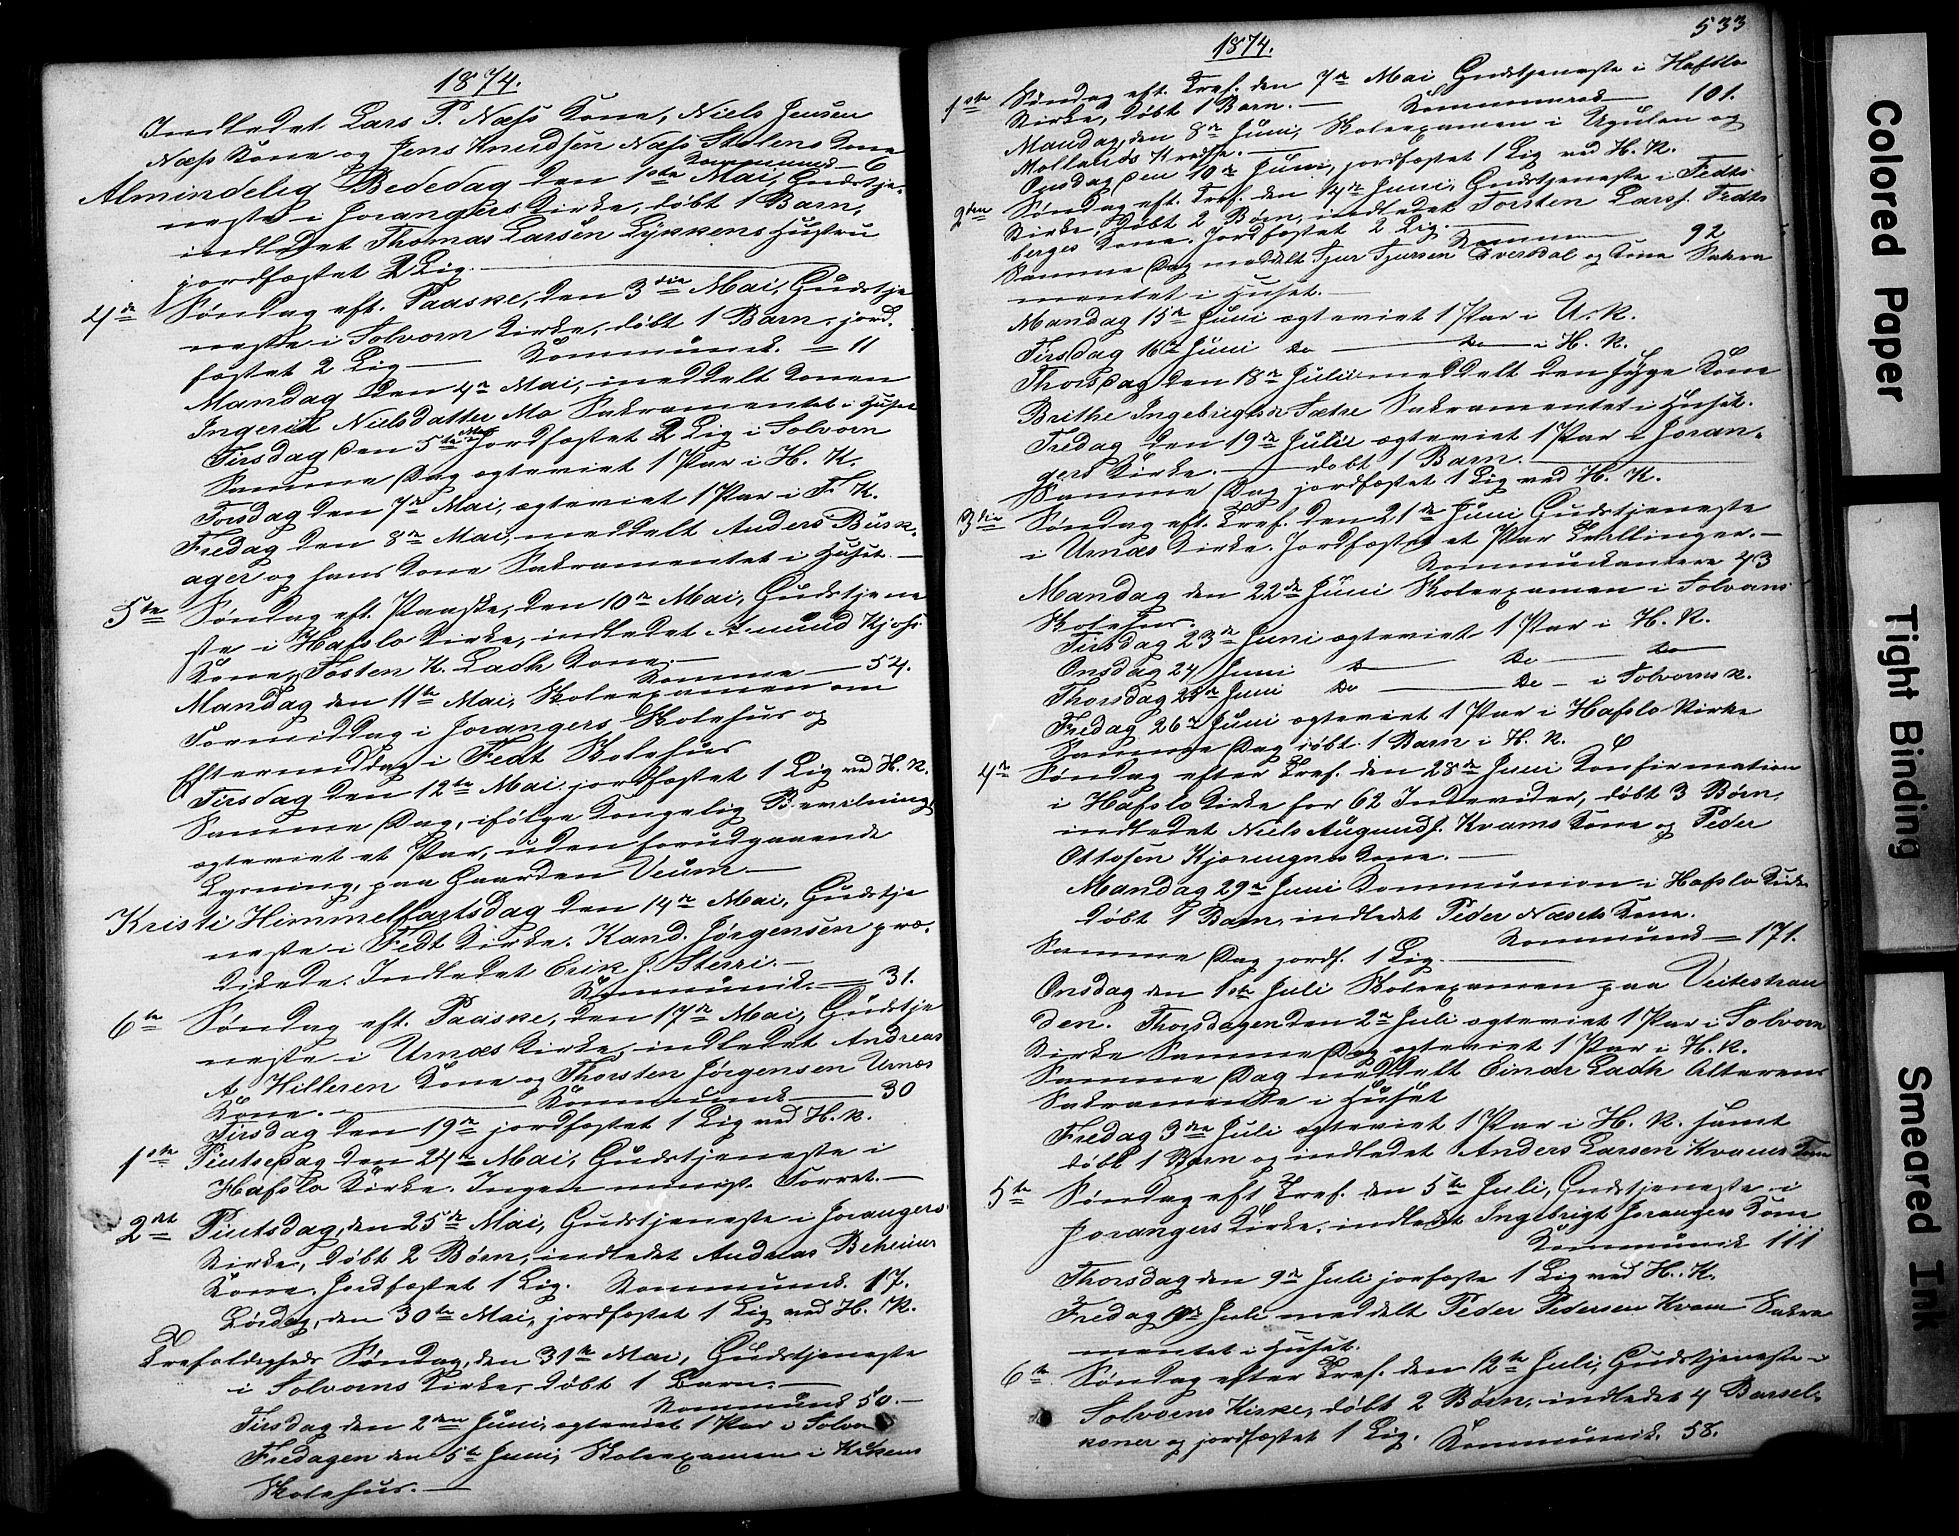 1874.
Indledet Lars P. Næss Kone, Niels Jensen
Næss Kone og Jens Knudsen Næss Stolens Kone
Kommunik. 6
Almindelig Bededag den 1ste Mai, Gudstje-
neste i Joranger Kirke, døbt 1 Barn,
indledet Thomas Larsen Lykkens Hustru
jordfæstet 2 Lig.
4de Søndag eft. Paaske, den 3die Mai, Gudstje
neste i Solvorn Kirke, døbt 1 Barn, jord-
fæstet 2 Lig — Kommunik. — 11
Mandag den 4de Mai, meddelt Konen
Ingerid Nielsdatter Mo Sakramentet i Huset
Tirsdag den 5te Mai Jordfæstet 2 Lig i Solvorn
Samme Dag ægteviet 1 Par i H. K.
Torsdag den 7de Mai, ægteviet 1 Par i F. K.
Fredag den 8de Mai, meddelt Anders Busk-
ager og hans Kone Sakramentet i Huset. —
5te Søndag eft. Paaske, den 10de Mai, Gudstjene
ste i Hafslo Kirke, indledet Amund Kjos
Kone, Tosten K. Ladh Kone, —
Kommu — 54.
Mandag den 11te Mai, Skoleexamen om
Formiddag i Jorangers Skolehus og
Eftermiddag i Fedt Skolehus
Tirsdag den 12te Mai jordfæstet 1 Lig ved H. K.
Samme Dag, ifølge Kongelig Bevilning,
ægteviet et Par, uden forudgaaende
Lysning, paa Gaarden Veum. —
Kristi Himmelfartsdag den 14de Mai, Gudstje
neste i Fedt Kirke. Kand. Jørgensen præ-
dikede. Indledet Erik J. Sterri. —
Kommunik. — 31.
6te Søndag eft. Paaske, den 17de Mai, Gudstje
neste i Urnæs Kirke, indledet Andreas
A. Hilleren Kone og Thorsten Jørgensen Urnæs
Kone. — Kommunik — 30
Tirsdag den 19de jordfæstet 1 Lig ved H. K.
1ste Pintsedag den 24de Mai, Gudstjeneste i
Hafslo Kirke. Ingen minist. Forret. —
2det Pintsdag, den 25de Mai, Gudstjeneste i Jorangers
Kirke, døbt 2 Børn, indledet Andreas Beheim
Kone. Jordfæstet 1 Lig. Kommunik. 17.
Lørdag, den 30te Mai, jordfæstet 1 Lig ved H. K.
Trefoldigheds Søndag, den 31te Mai, Gudstjeneste
i Solvorns Kirke, døbt 1 Barn. —
Kommunik 50. —
Tirsdag den 2den Juni, ægteviet 1 Par i Solvo
Fredagen den 5te Juni, Skoleexamen i
Skolehus. —
533
1874.
1ste Søndag eft. Tref. den 7de Mai Gudstjeneste i Hafslo
Kirke, døbt 1 Barn. — Kommunik — 101.
Mandag, den 8de Juni, Skoleexamen i Ugulen og
Mollands Kreds. —
Onsdag den 10de Juni, jordfæstet 1 Lig ved H. K.
2den Søndag eft. Tref. den 14de Juni, Gudstjeneste i Fedts
Kirke, døbt 2 Børn, indledet Torsten Lars. Fedts
berges Kone. Jordfæstet 2 Lig. —
Kommun — 92
Samme Dag meddelt Tjur Tjursen Kverdal og Kone Sakra
mentet i Huset. —
Mandag 15de Juni ægteviet 1 Par i U. K.
Tirsdag 16de Juni do — do — i H. K.
Thorsdag den 18de Juli meddelt den syge Kone
Brithe Ingebrigtsd. Sætre Sakramentet i Huset.
Fredag den 19de Juli ægteviet 1 Par i Joran-
gers Kirke. — døbt 1 Barn. —
Samme Dag jordfæstet 1 Lig ved H. K.
3die Søndag eft. Tref. den 21de Juni Gudstjeneste
i Urnæs Kirke. Jordfæstet et Par Tvillinger. —
Kommunikantere 43
Mandag den 22de Juni Skoleexamen i Solvorns
Skolehus.
Tirsdag 23de Juni ægteviet 1 Par i H. K.
Onsdag 24 Juni do — do — do
Thorsdag 25de Juni do — do — i Solvorns K.
Fredag 26de Juni ægteviet 1 Par i Hafslo Kirke
Samme Dag døbt 1 Barn i H. K.
4de Søndag efter Tref. den 28de Juni Konfirmation
i Hafslo Kirke for 62 Individer, døbt 3 Børn,
indledet Niels Augunds. Kvams Kone og Peder
Ottosen Kjærugnes Kone. —
Mandag 29de Juni Kommunion i Hafslo Kirke
døbt 1 Barn, indledet Peder Næsets Kone.
Kommunik — 171.
Samme Dag jordf. 1 Lig. —
Onsdag den 1ste Juli Skoleexamen paa Veitestran
den. Thorsdagen den 2de Juli ægteviet 1 Par i Solvorn
Kirke Samme Dag ægteviet 1 Par i H. K.
Samme Dag meddelt Einar Ladh Alterens
Sakramente i Huset
Fredag 3die Juli ægteviet 1 Par i H. K. samt
døbt 1 Barn og indledet Anders Larsen Kvams
5te Søndag eft Tref. den 5te Juli, Gudstjeneste i
Jorangers Kirke, indledet Ingebrigt Jorangers Kone
Kommunik 111
Thorsdag den 9de Juli jorfæste 1 Lig ved H. K.
Fredag 10de Juli meddelt Peder Pedersen Kvam Sakra
mentet i Huset.
6te Søndag efter Tref. den 12te Juli, Gudstjeneste i
Solvorns Kirke, døbt 2 Børn, indledet 4 Barsel-
koner og jordfæstet 1 Lig. Kommunik. 58.
Colored Paper
Tight Binding
Smeared Ink